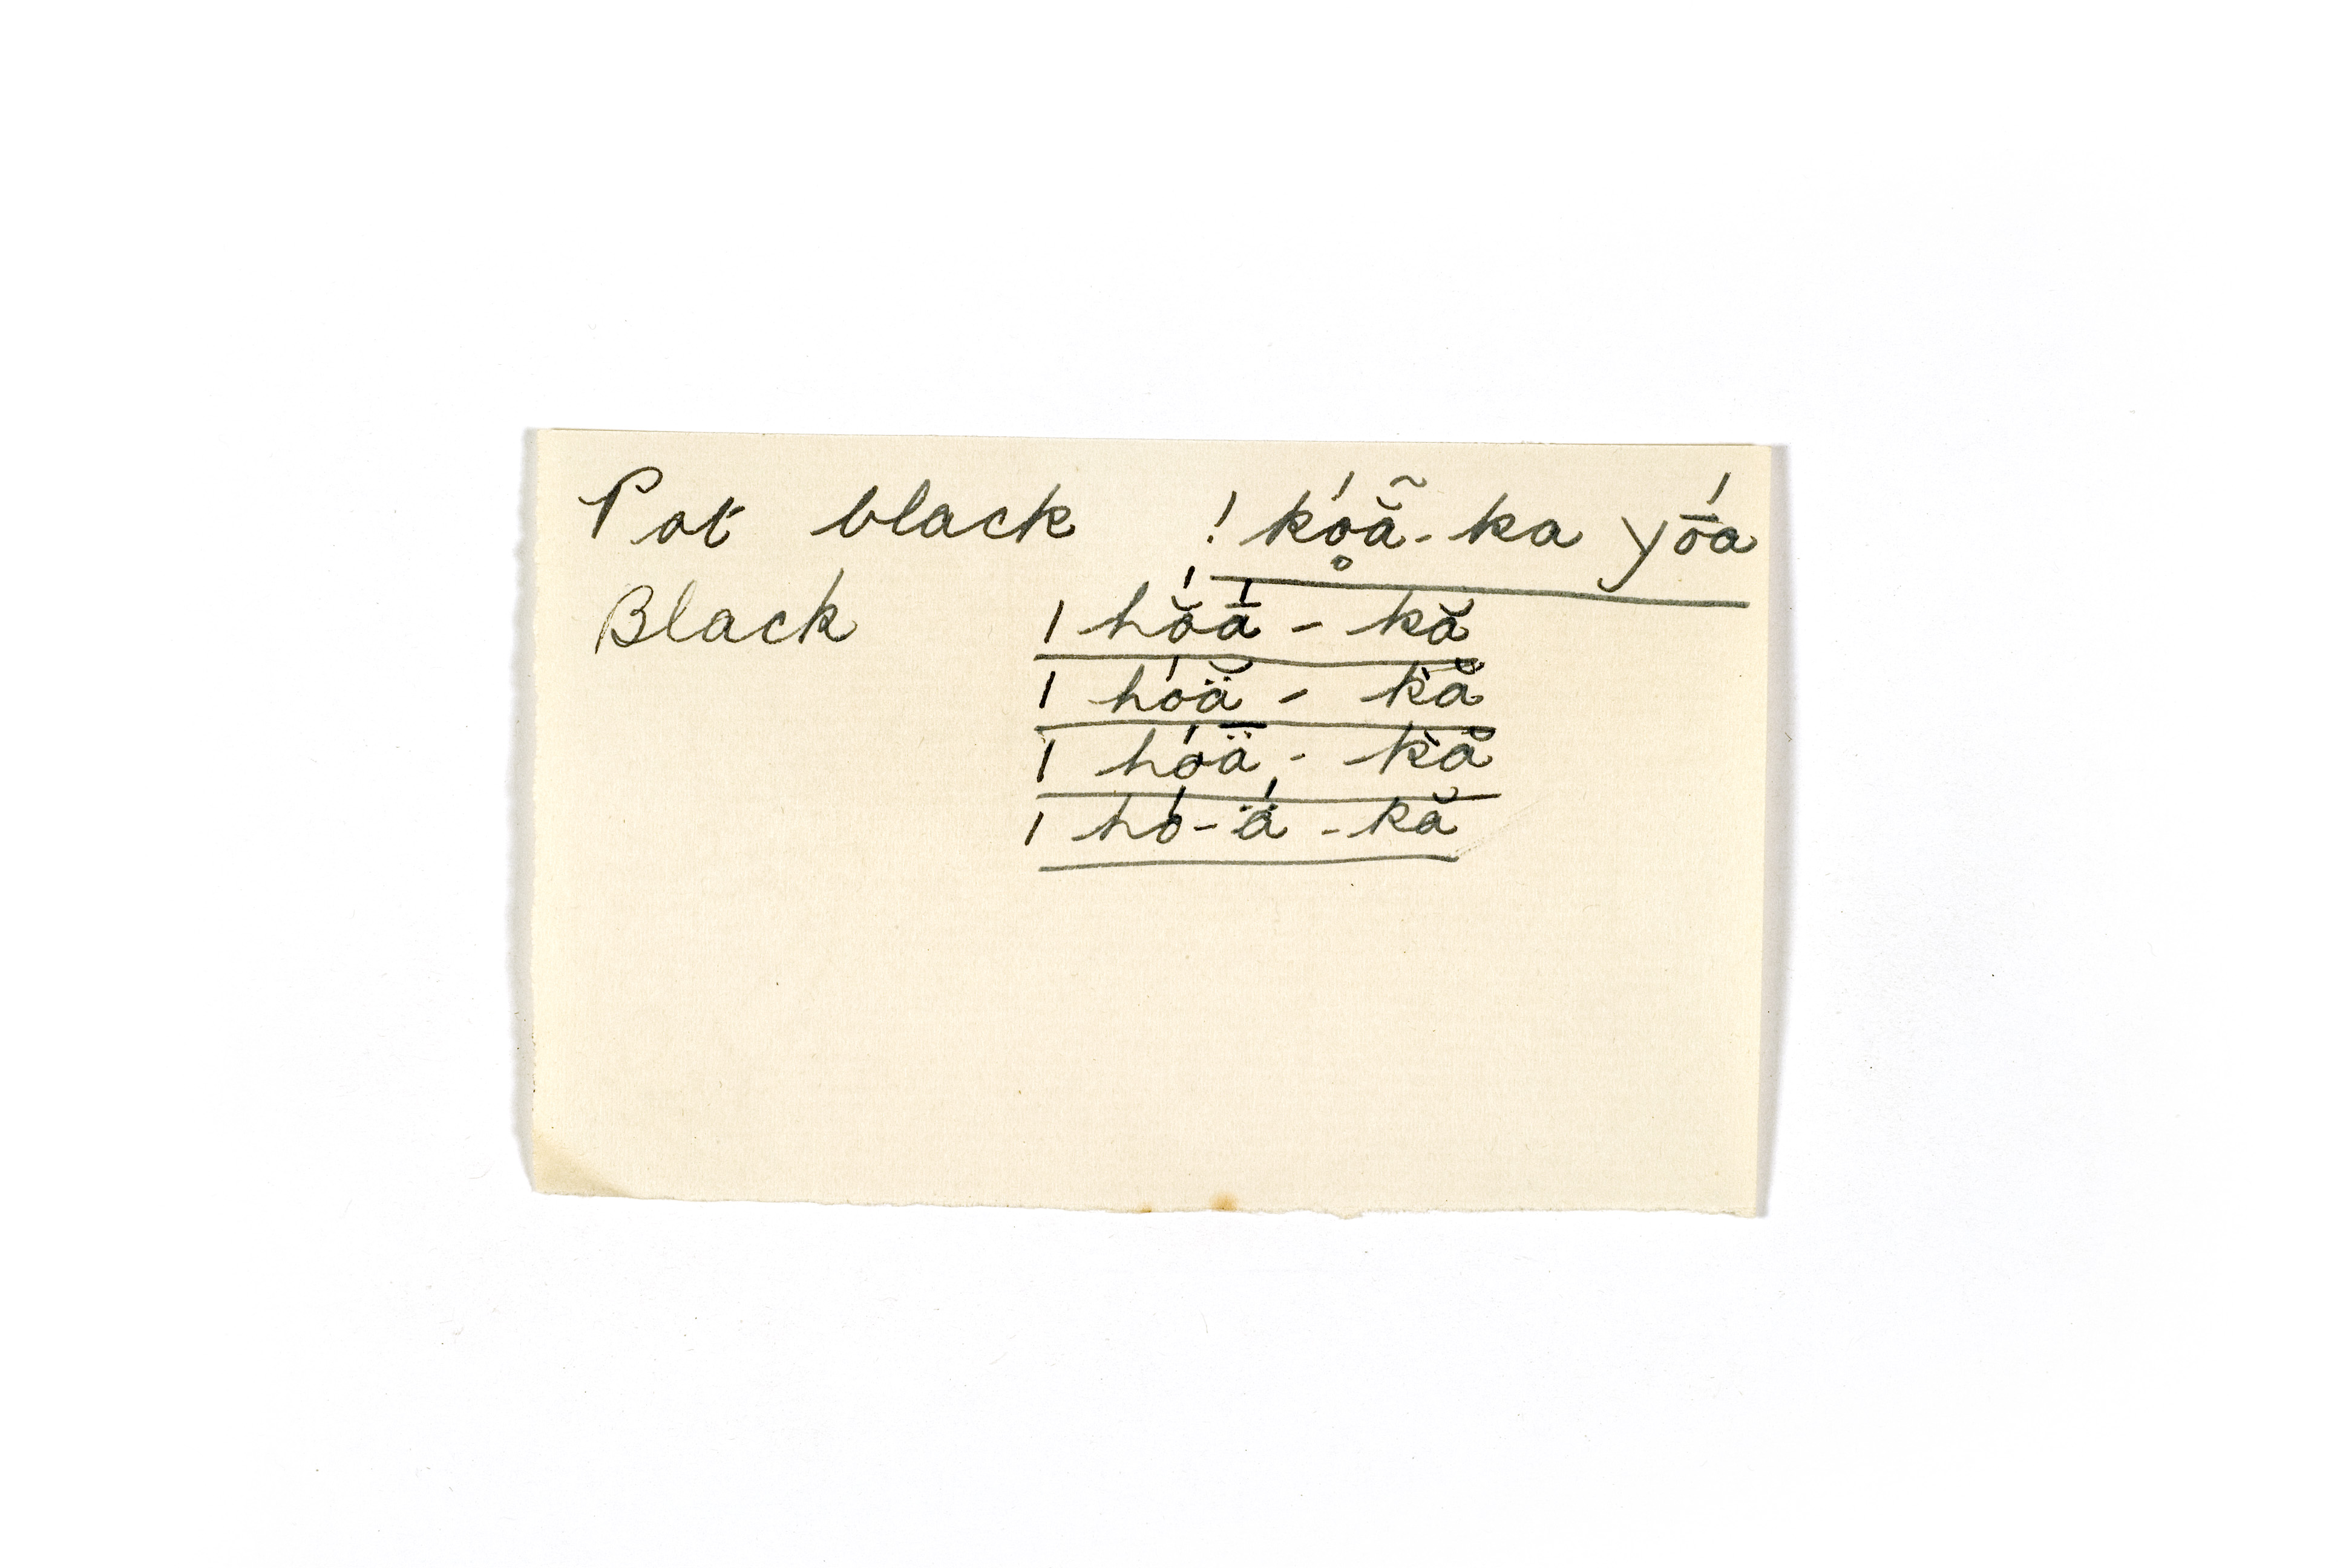 Pot black !kó̥ã̆-ka yṓa
Black |hŏ́ā́-kă
|hóä̆-k̈ă
|hóǟ-k̈ă
|hó-ä́-kă